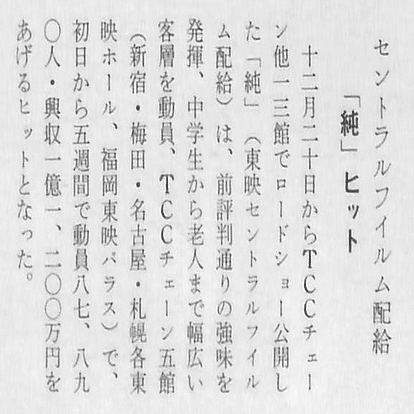 セントラルフイルム配給
「純」ヒット
十二月二十日からTCCチェー
ン他一三館でロードショー公開し
た「純」（東映セントラルフイル
ム配給）は、前評判通りの強味を
発揮、中学生から老人まで幅広い
客層を動員、TCCチェーン五館
（新宿・梅田・名古屋・札幌各東
映ホール、福岡東映パラス）で、
初日から五週間で動員八七、八九
〇人・興収一億一、二〇〇万円を
あげるヒットとなった。